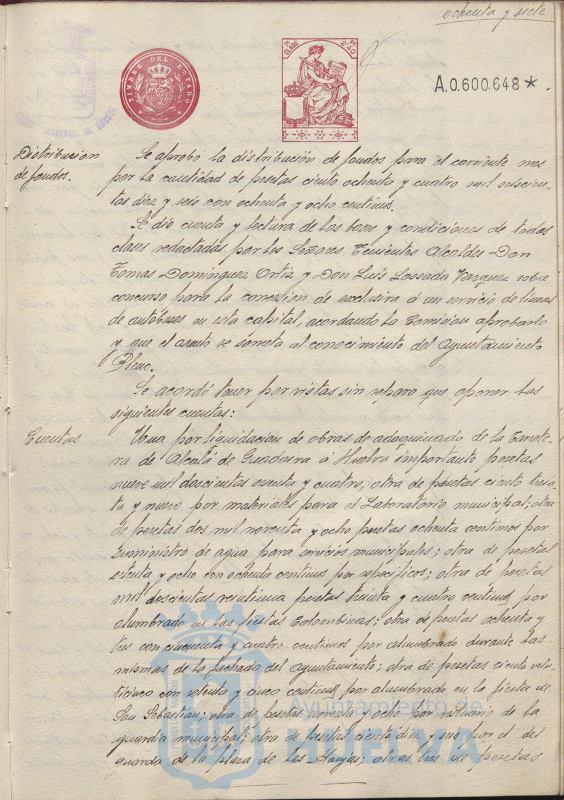 ochenta y siete
TIMBRE DEL ESTADO
CLASE
A.0.600.648*.
Distribucion
de fondos.
Se aprobó la distribución de fondos para el corriente mes
por la cantidad de pesetas ciento ochenta y cuatro mil
tos diez y seis con ochenta y ocho centimos.
Se dio cuenta y lectura de las bases y condiciones de todas
clases redactadas por los Señores Tenientes Alcaldes Don
Tomas Dominguez Ortiz y Don Luis Lossada Vazquez sobre
concurso para la concesion de exclusiva á un servicio de lineas
de autobuses en esta capital, acordando la Comision aprobarlo
y que el asunto se someta al conocimiento del Ayuntamiento
Pleno.
Se acordó tener por vistas sin reparo que oponer las
siguientes cuentas:
Cuentas
Una por liquidacion de obras de adoquinado de la Carrete-
ra de Alcalá de Guadaira á Huelva importante pesetas
nueve mil doscientas sesenta y cuatro; otra de pesetas ciento trein-
ta y nueve por materiales para el Laboratorio municipal; otra
de pesetas dos mil noventa y ocho pesetas ochenta centimos por
suministro de agua para servicios municipales; otra de pesetas
y ocho con ochenta centimos por especificos; otra de pesetas
mil doscientas pesetas treinta y cuatro centimos por
alumbrado en las fiestas Colombinas; otra de pesetas ochenta y
tres con cincuenta y cuatro centimos por alumbrado durante las
mismas de la fachada del Ayuntamiento; otra de pesetas ciento vein-
ticinco con setenta y cinco centimos por alumbrado en la fiesta de
San Sebastian; otra de pesetas noventa y ocho por vestuario de la
guardia municipal; otra de pesetas ciento diez y seis por el del
guarda de la plaza de las Monjas; otras tres de pesetas
Ayuntamiento de
HUELVA